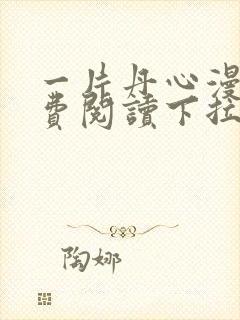 一片丹心漫
費閱讀下拉
陶娜